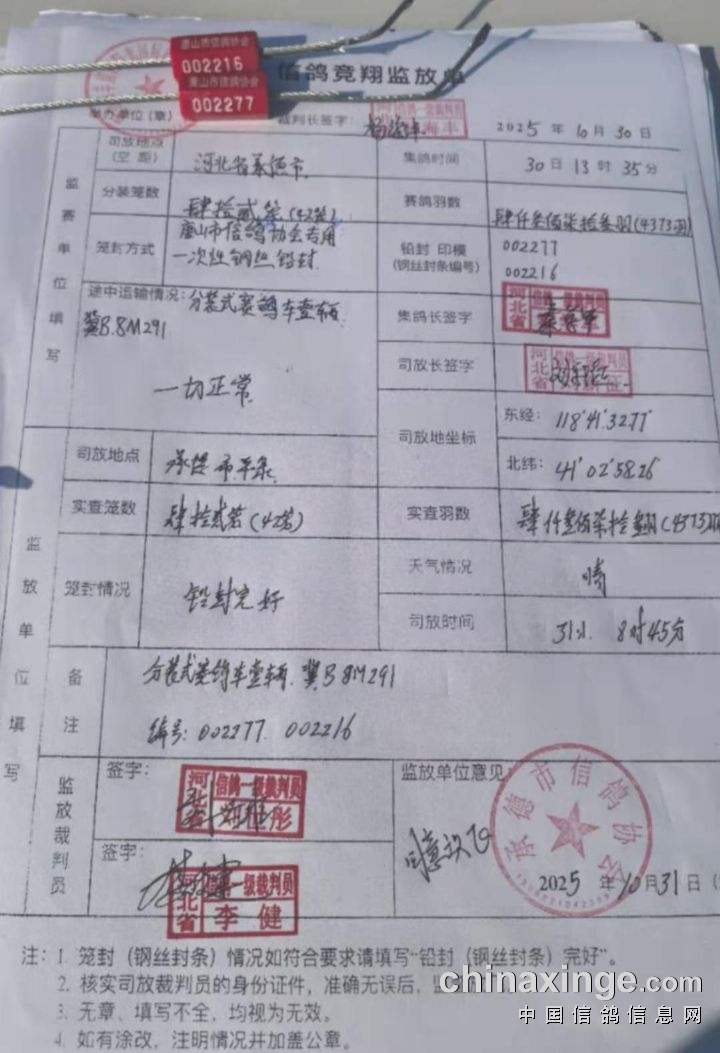 唐山市信鸽协会
002216
唐山市信鸽协会
002277
信鸽竞翔监放单
举办单位(章)
裁判长签字:
2025年10月30日
监赛单位填写
司放地点
(空距)
河北省承德市
集鸽时间
30日13时35分
分装笼数
肆拾贰笼(42笼)
赛鸽羽数
肆仟叁佰柒拾叁羽(4373羽)
笼封方式
唐山市信鸽协会专用
一次性钢丝铅封
铅封 印模
(钢丝封条编号)
002277
002216
途中运输情况:分装式赛鸽车壹辆
冀B.8M291
一切正常
集鸽长签字
河北省
信鸽一级裁判员
司放长签字
河北省
信鸽一级裁判员
司放地坐标
东经:118°41'3277"
北纬:41°02'58.26
监放单位填写
司放地点
承德市平泉
实查笼数
肆拾贰笼(42笼)
实查羽数
肆仟叁佰柒拾叁羽(4373羽
笼封情况
铅封完好
天气情况
晴
司放时间
31日 8时45分
备注
分装式赛鸽车壹辆 冀B8M291
编号:002277 002216
监放裁判员
签字:
河北省
信鸽一级裁判员
签字:
河北省
信鸽一级裁判员
李健
监放单位意见:
同意放飞
承德市信鸽协会
2025年10月31日
注: 1. 笼封(钢丝封条)情况如符合要求请填写“铅封(钢丝封条)完好”。
2. 核实司放裁判员的身份证件,准确无误后,监
3. 无章、填写不全,均视为无效。
4. 如有涂改,注明情况并加盖公章。
chinaxinge.com
中国信鸽信息网